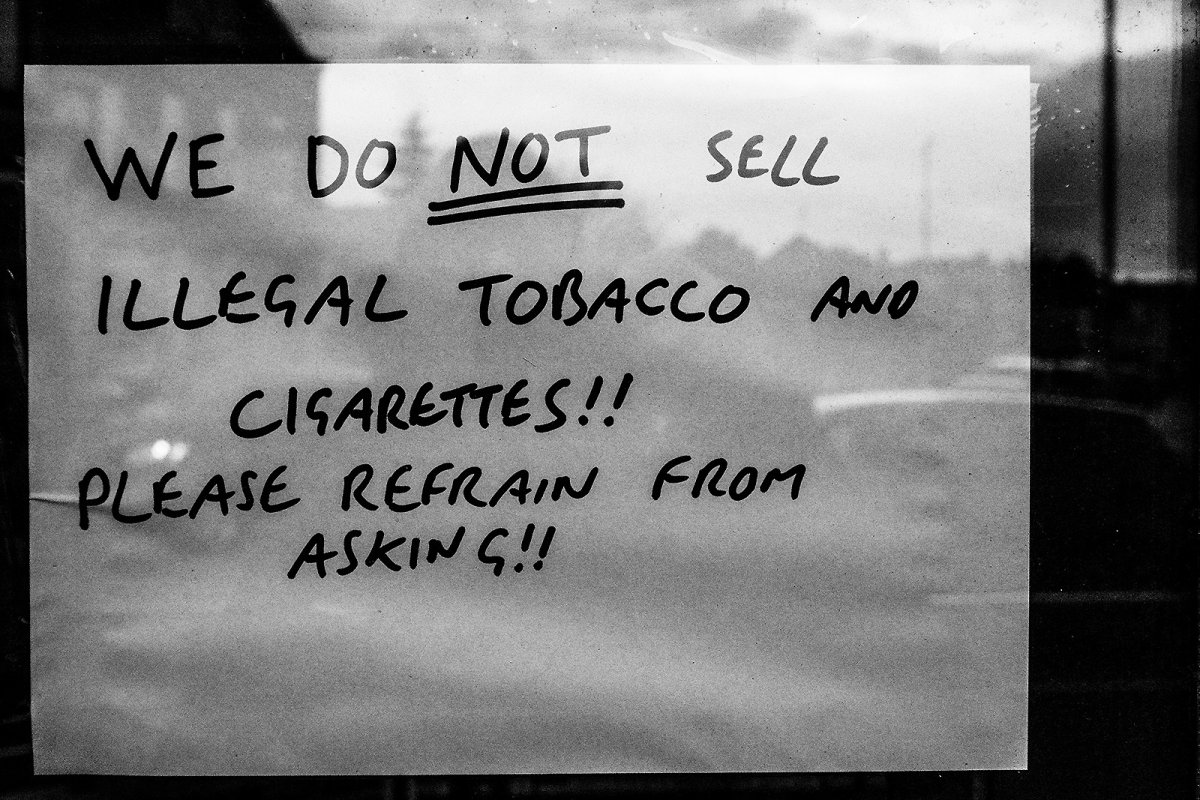 WE DO NOT SELL
ILLEGAL TOBACCO AND
CIGARETTES!!
PLEASE REFRAIN FROM
ASKING!!